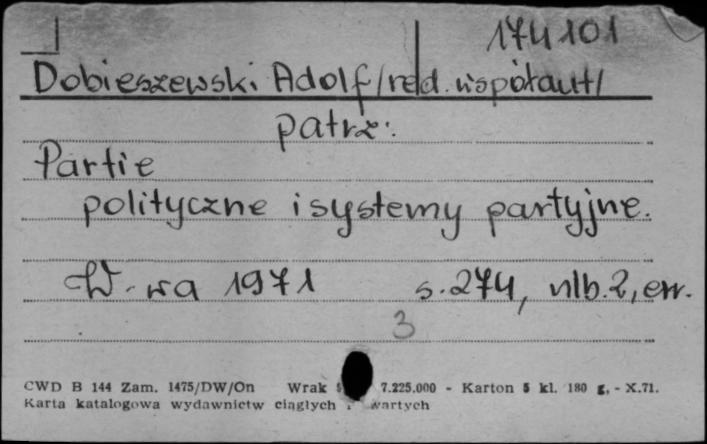 174101
Dobieszewski Adolf /red. współaut/
patrz:
Partie
polityczne i systemy partyjne.
W-wa 1971 s. 274, nlb. 2, err.
3
CWD B 144 Zam. 1475/DW/On Wrak 7.225.000 - Karton 5 kl. 180 g, - X.71.
Karta katalogowa wydawnictw ciągłych i zwartych